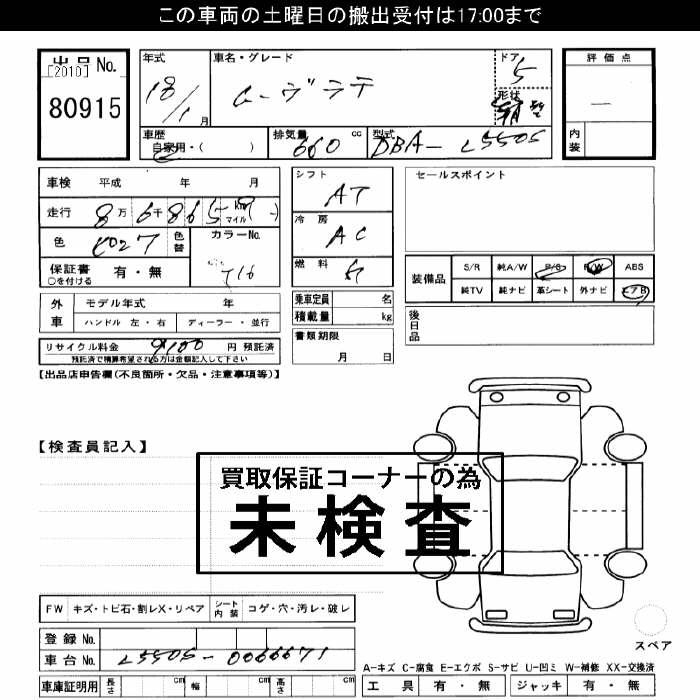 この車両の土曜日の搬出受付は17:00まで
出品 No.
[2010]
80915
年式 18/1 月
車名・グレード ムーヴラテ
ドア 5
形状
評価点 —
内装
車歴 自家用・( )
排気量 660 cc
型式 DBA-L550S
車検 平成 年 月
走行 8万6千865 km マイル
色 色替
カラーNo. T16
保証書 有・無
○を付ける
シフト AT
冷房 AC
燃料 ガ
セールスポイント
装備品 S/R 純A/W P/S P/W ABS
純TV 純ナビ 革シート 外ナビ エアB
外車 モデル年式 年
ハンドル 左・右 ディーラー・並行
乗車定員 名
積載量 kg
後日品
リサイクル料金 9100 円 預託済
預託済で精算希望される方は金額記入して下さい
書類期限
月 日
【出品店申告欄(不良箇所・欠品・注意事項等)】
【検査員記入】
買取保証コーナーの為
未検査
FW キズ・トビ石・割レX・リペア シート内装 コゲ・穴・汚レ・破レ
登録 No.
車台 No. L550S-0066671
スペア
A-キズ C-腐食 E-エクボ S-サビ U-凹ミ W-補修 XX-交換済
車庫証明用 長さ cm 幅 cm 高さ cm
工具 有・無 ジャッキ 有・無